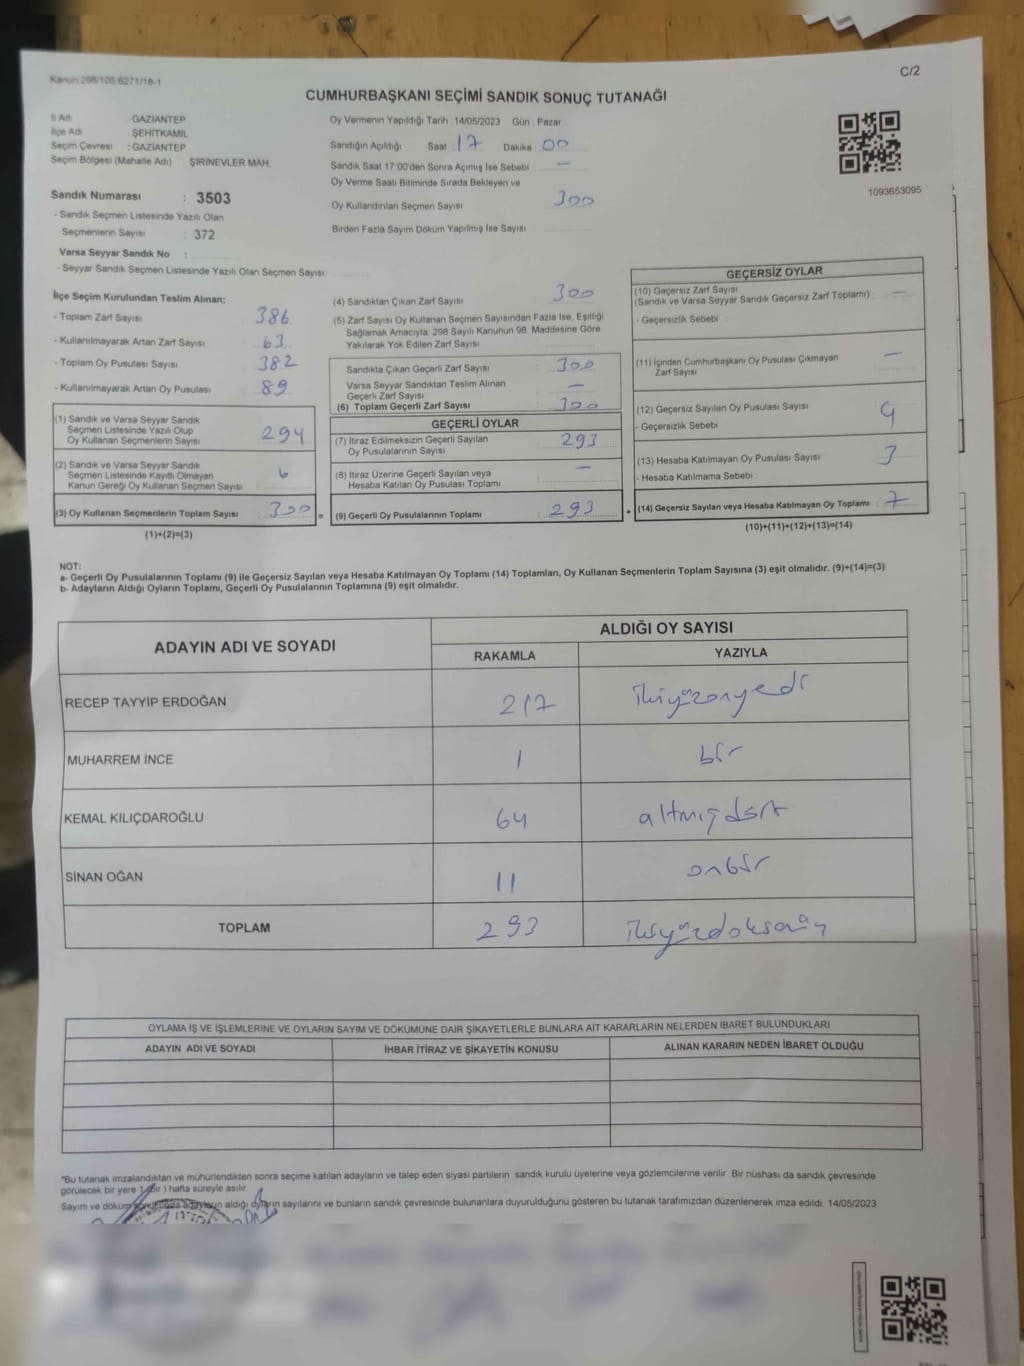 Kanun 298/105 6271/18-1
C/2
CUMHURBAŞKANI SEÇİMİ SANDIK SONUÇ TUTANAĞI
İl Adı : GAZİANTEP
İlçe Adı : ŞEHİTKAMİL
Seçim Çevresi : GAZİANTEP
Seçim Bölgesi (Mahalle Adı) : ŞİRİNEVLER MAH.
Sandık Numarası : 3503
- Sandık Seçmen Listesinde Yazılı Olan
Seçmenlerin Sayısı : 372
Varsa Seyyar Sandık No :
- Seyyar Sandık Seçmen Listesinde Yazılı Olan Seçmen Sayısı:
Oy Vermenin Yapıldığı Tarih :14/05/2023 Gün : Pazar
Sandığın Açıldığı Saat : 17 Dakika : 00
Sandık Saat 17:00'den Sonra Açılmış İse Sebebi : —
Oy Verme Saati Bitiminde Sırada Bekleyen ve
Oy Kullandırılan Seçmen Sayısı : 300
Birden Fazla Sayım Döküm Yapılmış İse Sayısı :
1093653095
İlçe Seçim Kurulundan Teslim Alınan;
- Toplam Zarf Sayısı : 386
- Kullanılmayarak Artan Zarf Sayısı : 63
- Toplam Oy Pusulası Sayısı : 382
- Kullanılmayarak Artan Oy Pusulası : 89
(1) Sandık ve Varsa Seyyar Sandık
Seçmen Listesinde Yazılı Olup
Oy Kullanan Seçmenlerin Sayısı : 294
(2) Sandık ve Varsa Seyyar Sandık
Seçmen Listesinde Kayıtlı Olmayan
Kanun Gereği Oy Kullanan Seçmen Sayısı : 6
(3) Oy Kullanan Seçmenlerin Toplam Sayısı : 300
(1)+(2)=(3)
(4) Sandıktan Çıkan Zarf Sayısı : 300
(5) Zarf Sayısı Oy Kullanan Seçmen Sayısından Fazla İse, Eşitliği
Sağlamak Amacıyla, 298 Sayılı Kanunun 98. Maddesine Göre
Yakılarak Yok Edilen Zarf Sayısı :
Sandıkta Çıkan Geçerli Zarf Sayısı : 300
Varsa Seyyar Sandıktan Teslim Alınan
Geçerli Zarf Sayısı : —
(6) Toplam Geçerli Zarf Sayısı : 300
GEÇERLİ OYLAR
(7) İtiraz Edilmeksizin Geçerli Sayılan
Oy Pusulalarının Sayısı : 293
(8) İtiraz Üzerine Geçerli Sayılan veya
Hesaba Katılan Oy Pusulası Toplamı : —
= (9) Geçerli Oy Pusulalarının Toplamı : 293 +
GEÇERSİZ OYLAR
(10) Geçersiz Zarf Sayısı
(Sandık ve Varsa Seyyar Sandık Geçersiz Zarf Toplamı) : —
- Geçersizlik Sebebi :
(11) İçinden Cumhurbaşkanı Oy Pusulası Çıkmayan
Zarf Sayısı : —
(12) Geçersiz Sayılan Oy Pusulası Sayısı :
- Geçersizlik Sebebi :
(13) Hesaba Katılmayan Oy Pusulası Sayısı : 3
- Hesaba Katılmama Sebebi :
(14) Geçersiz Sayılan veya Hesaba Katılmayan Oy Toplamı : 7
(10)+(11)+(12)+(13)=(14)
NOT:
a- Geçerli Oy Pusulalarının Toplamı (9) ile Geçersiz Sayılan veya Hesaba Katılmayan Oy Toplamı (14) Toplamları, Oy Kullanan Seçmenlerin Toplam Sayısına (3) eşit olmalıdır. (9)+(14)=(3)
b- Adayların Aldığı Oyların Toplamı, Geçerli Oy Pusulalarının Toplamına (9) eşit olmalıdır.
ADAYIN ADI VE SOYADI
ALDIĞI OY SAYISI
RAKAMLA YAZIYLA
RECEP TAYYİP ERDOĞAN 217 ikiyüzonyedi
MUHARREM İNCE 1 bir
KEMAL KILIÇDAROĞLU 64 altmışdört
SİNAN OĞAN 11 onbir
TOPLAM 293 ikiyüzdoksanüç
OYLAMA İŞ VE İŞLEMLERİNE VE OYLARIN SAYIM VE DÖKÜMÜNE DAİR ŞİKAYETLERLE BUNLARA AİT KARARLARIN NELERDEN İBARET BULUNDUKLARI
ADAYIN ADI VE SOYADI İHBAR İTİRAZ VE ŞİKAYETİN KONUSU ALINAN KARARIN NEDEN İBARET OLDUĞU
*Bu tutanak imzalandıktan ve mühürlendikten sonra seçime katılan adayların ve talep eden siyasi partilerin sandık kurulu üyelerine veya gözlemcilerine verilir. Bir nüshası da sandık çevresinde
görülecek bir yere 1 (bir) hafta süreyle asılır.
Sayım ve döküm sonucunda adayların aldığı oyların sayılarını ve bunların sandık çevresinde bulunanlara duyurulduğunu gösteren bu tutanak tarafımızdan düzenlenerek imza edildi. 14/05/2023